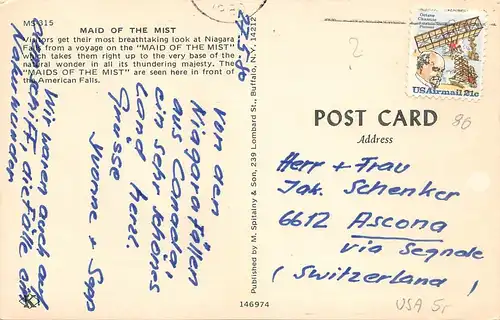 MS-315
MAID OF THE MIST
Visitors get their most breathtaking look at Niagara
Falls from a voyage on the "MAID OF THE MIST"
which takes them right up to the very base of the
natural wonder in all its thundering majesty. The
"MAIDS OF THE MIST" are seen here in front of
the American Falls.
27.5.80
Von den
Niagarafällen
aus Canada,
ein sehr schönes
Land herzl.
Grüsse
Yvonne + Sepp
Wir waren auch auf
Schiff, die Fälle an
Published by M. Spitalny & Son, 239 Lombard St., Buffalo, N.Y. 14212
146974
2
Octave Chanute
Aviation Pioneer
USAirmail 21c
POST CARD
Address
80
Herr + Frau
Jak. Schenker
6612 Ascona
via Segnale
( Switzerland )
USA Sr
K